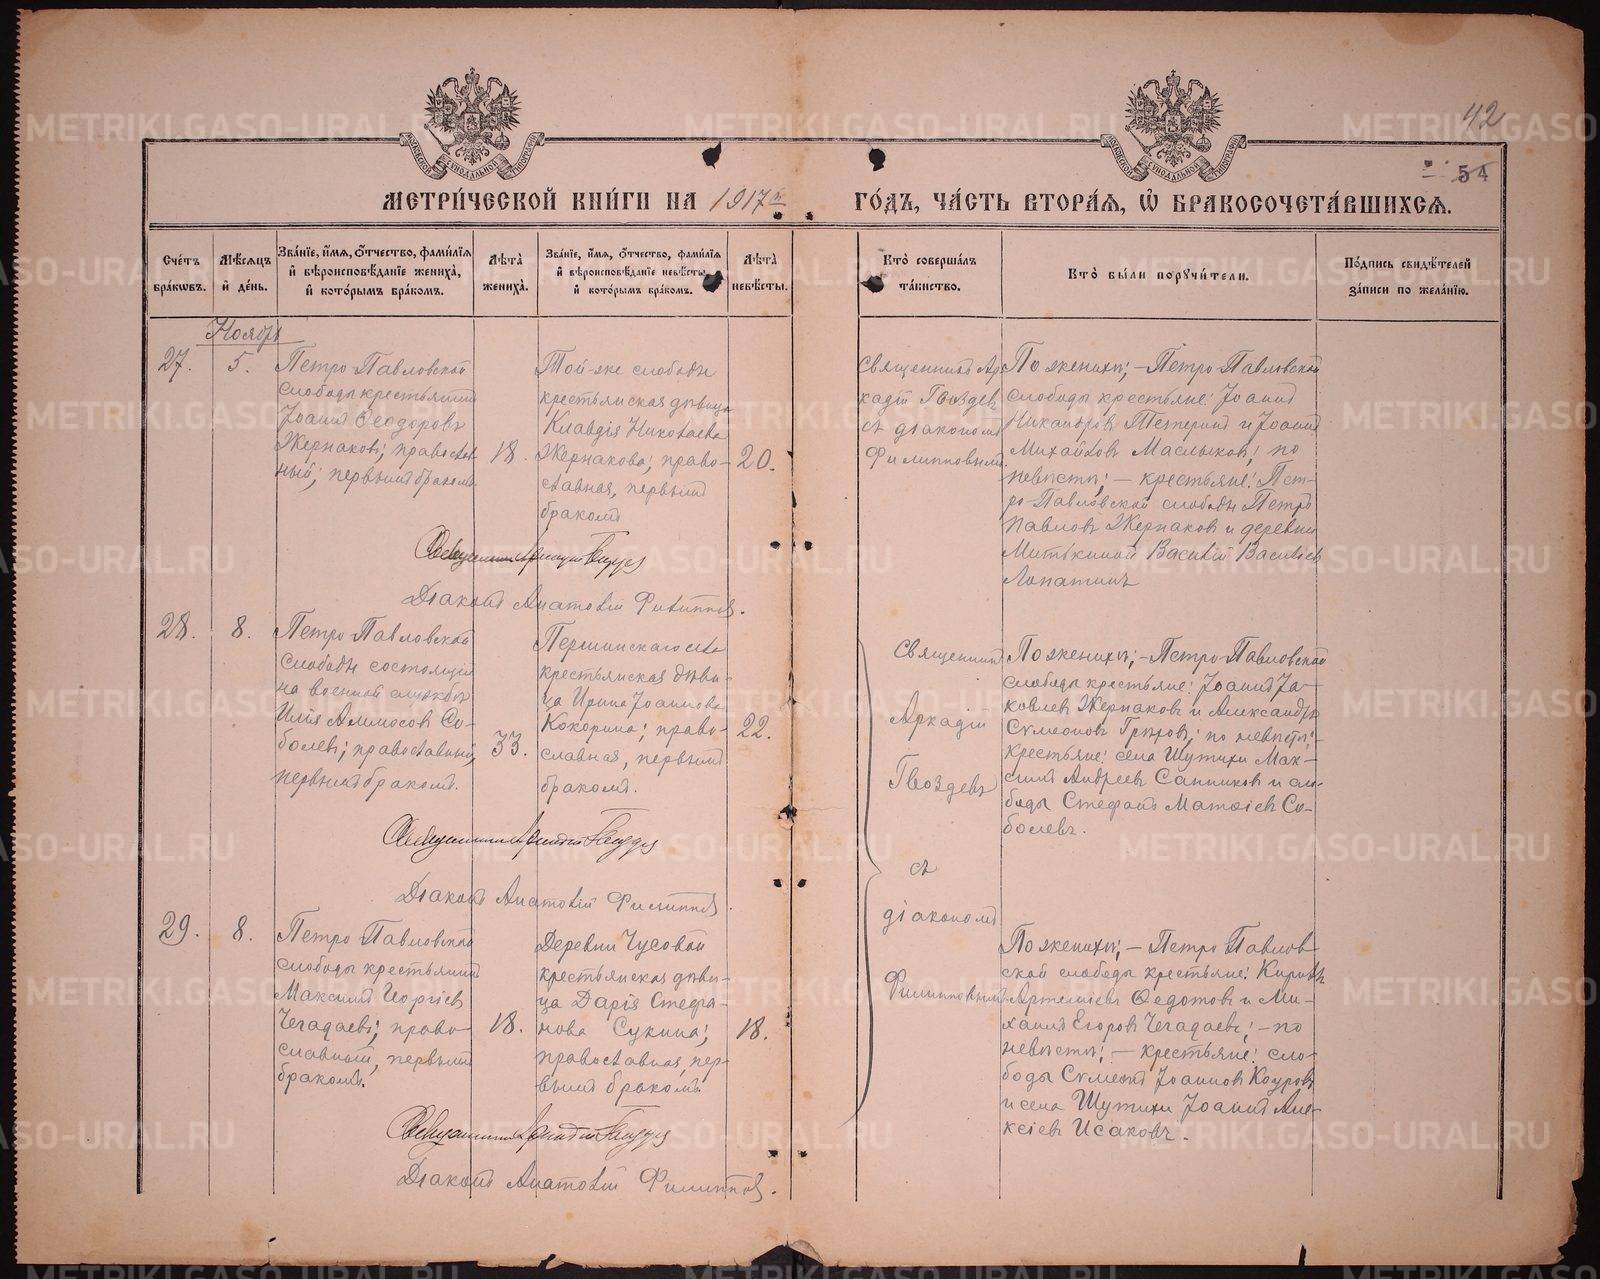 42
54
МЕТРИЧЕСКОЙ КНИГИ НА 1917й ГОДЪ, ЧАСТЬ ВТОРАЯ, Ѡ БРАКОСОЧЕТАВШИХСЯ.
Счетъ браковъ.
Мѣсяцъ и день.
Званіе, имя, отчество, фамилія
и вѣроисповѣданіе жениха,
и которымъ бракомъ.
Лѣта жениха.
Званіе, имя, отчество, фамилія
и вѣроисповѣданіе невѣсты
и которымъ бракомъ.
Лѣта невѣсты.
Кто совершалъ
таинство.
Кто были поручители.
Подпись свидѣтелей
записи по желанію.
Ноябрь
27.
5.
Петро-Павловской
слободы крестьянинъ
Іоаннъ Ѳеодоровъ
Жернаковъ; православ
ный; первымъ бракомъ.
18.
Той-же слободы
крестьянская дѣвица
Клавдія Николаева
Жернакова; право-
славная, первымъ
бракомъ
20.
Священникъ Ар
кадій Гвоздевъ
съ діакономъ
Филипповымъ.
По женихѣ; – Петро-Павловской
слободы крестьяне: Іоаннъ
Никандровъ Тетеринъ и Іоаннъ
Михайловъ Маслыковъ; по
невѣстѣ; – крестьяне: Пет-
ро-Павловской слободы Петръ
Павловъ Жернаковъ и деревни
Митькиной Василій Васильевъ
Лопатинъ
Священникъ Аркадій Гвоздевъ
Діаконъ Анатолій Филипповъ.
28.
8.
Петро-Павловской
слободы состоящій
на военной службѣ
Илія Аммосовъ Со-
болевъ; православный,
первымъ бракомъ.
33.
Першинскаго села
крестьянская дѣви-
ца Ирина Іоаннова
Кокорина; право-
славная, первымъ
бракомъ.
22.
Священникъ
Аркадій
Гвоздевъ
съ
діакономъ
Филипповымъ
По женихѣ; – Петро-Павловской
слободы крестьяне: Іоаннъ Іа-
ковлевъ Жернаковъ и Александръ
Сѵмеоновъ; по невѣстѣ: –
крестьяне: села Шутихи Мак-
симъ Андреевъ Санниковъ и сло-
боды Стефанъ Матѳіевъ Со-
болевъ.
Священникъ Аркадій Гвоздевъ
Діаконъ Анатолій Филипповъ.
29.
8.
Петро-Павловской
слободы крестьянинъ
Максимъ Георгіевъ
Чегадаевъ; право-
славный, первымъ
бракомъ.
18.
Деревни Чусовой
крестьянская дѣви-
ца Дарія Стефа-
нова Сукина;
православная, пер-
вымъ бракомъ
18.
По женихѣ; – Петро-Павлов-
ской слободы крестьяне: Кириллъ
Артеміевъ Ѳедотовъ и Ми-
хаилъ Егоровъ Чегадаевъ; – по
невѣстѣ; – крестьяне: сло-
боды Сѵмеонъ Іоанновъ Коуровъ
и села Шутихи Іоаннъ Але-
ксіевъ Исаковъ.
Священникъ Аркадій Гвоздевъ
Діаконъ Анатолій Филипповъ.
METRIKI.GASO-URAL.RU